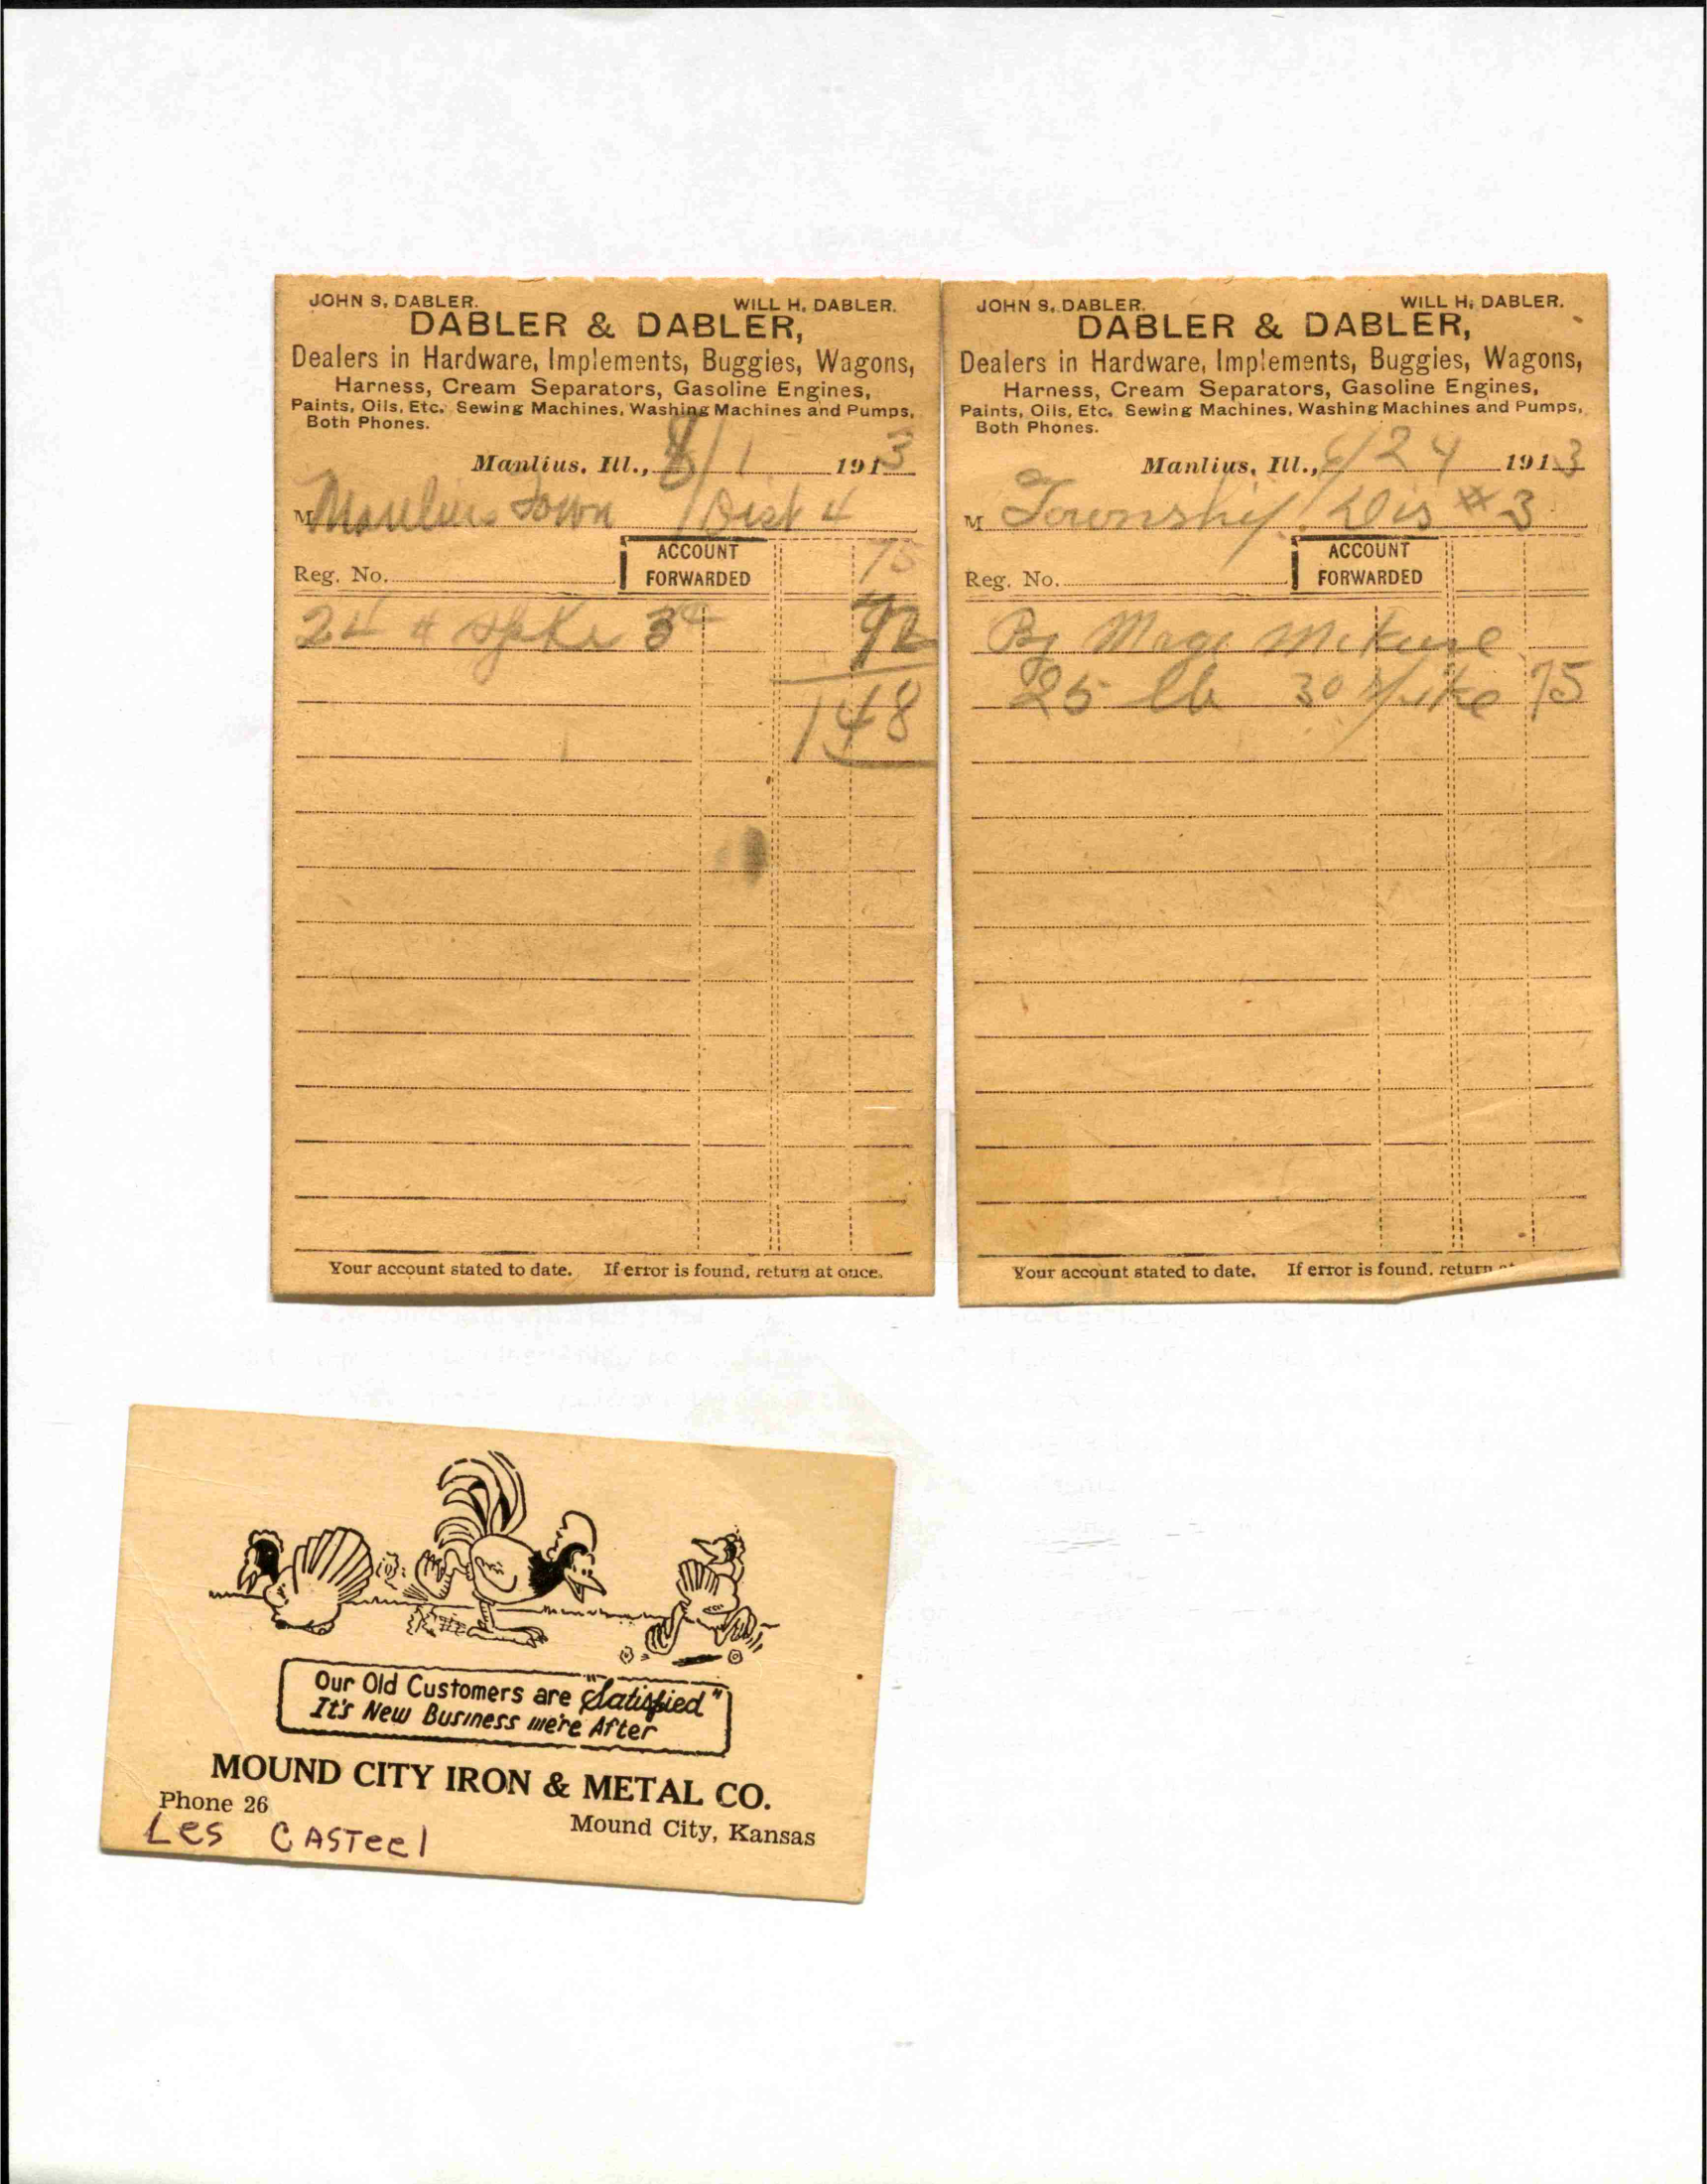 JOHN S. DABLER. WILL H. DABLER.
DABLER & DABLER,
Dealers in Hardware, Implements, Buggies, Wagons,
Harness, Cream Separators, Gasoline Engines,
Paints, Oils, Etc. Sewing Machines, Washing Machines and Pumps,
Both Phones.
Manlius, Ill., 8/1 1913
M Manlius Town / Dist 4
ACCOUNT 75
Reg. No. FORWARDED
24 # Spike 3¢ 72
148
Your account stated to date. If error is found, return at once.
JOHN S. DABLER. WILL H. DABLER.
DABLER & DABLER,
Dealers in Hardware, Implements, Buggies, Wagons,
Harness, Cream Separators, Gasoline Engines,
Paints, Oils, Etc. Sewing Machines, Washing Machines and Pumps,
Both Phones.
Manlius, Ill., 6/24 1913
M Township / Dis #3
ACCOUNT
Reg. No. FORWARDED
By
25 lb 30 Spike 75
Your account stated to date. If error is found, return
Our Old Customers are "Satisfied"
It's New Business we're After
MOUND CITY IRON & METAL CO.
Phone 26
Mound City, Kansas
Les CASTeel